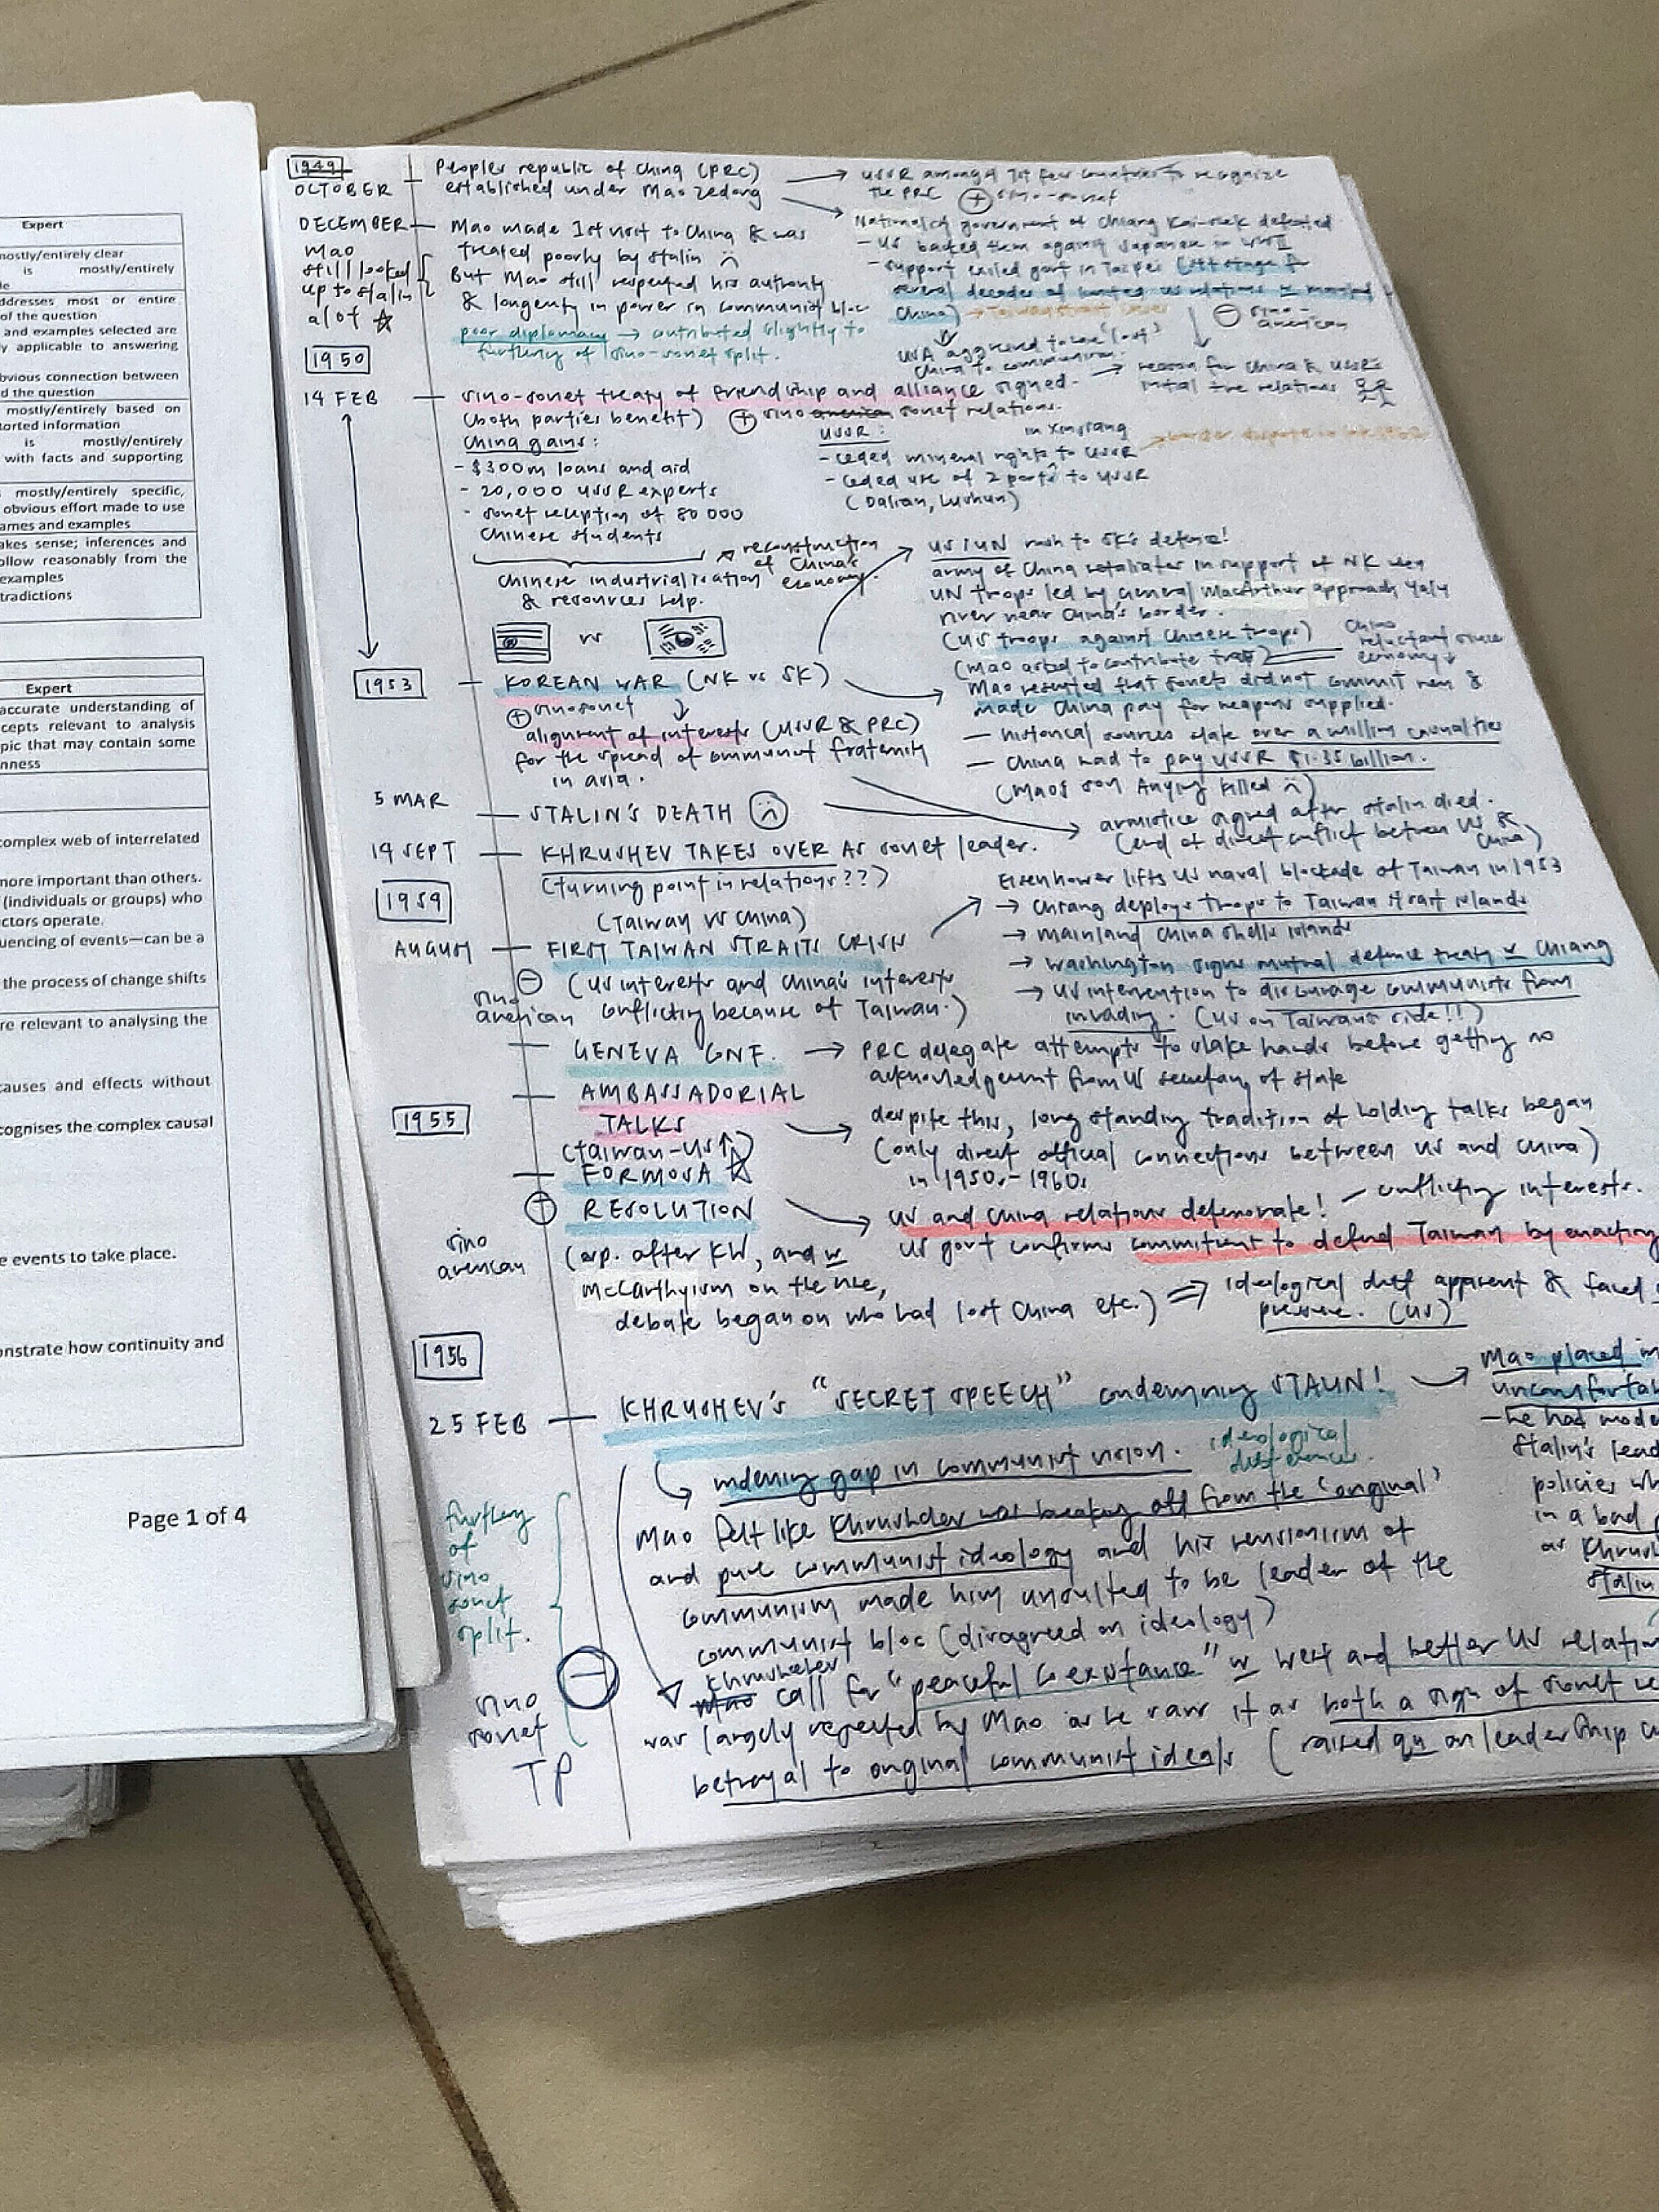 Expert
mostly/entirely clear
is mostly/entirely
addresses most or entire
of the question
and examples selected are
y applicable to answering
bvious connection between
d the question
mostly/entirely based on
orted information
is mostly/entirely
with facts and supporting
mostly/entirely specific,
obvious effort made to use
ames and examples
akes sense; inferences and
ollow reasonably from the
examples
tradictions
Expert
accurate understanding of
cepts relevant to analysis
pic that may contain some
nness
complex web of interrelated
more important than others.
(individuals or groups) who
ctors operate.
uencing of events—can be a
the process of change shifts
re relevant to analysing the
causes and effects without
cognises the complex causal
e events to take place.
onstrate how continuity and
Page 1 of 4
1949
OCTOBER
Peoples republic of China (PRC)
established under Mao Zedong
→ USSR amongst 1st few countries to recognize
the PRC ⊕ sino-soviet
Nationalist government of Chiang Kai-shek defeated
- US backed them against Japanese in WWII
- support exiled govt in Taipei (set stage for
several decades of limited US relations w mainland
China)
⊖ sino-
american
USA aggrieved to have 'lost'
China to communism.
→ reason for China & USSR's
initial +ve relations
DECEMBER
Mao
still looked
up to Stalin
alot ☆
Mao made 1st visit to China & was
treated poorly by Stalin
But Mao still respected his authority
& longevity in power in communist bloc
poor diplomacy → contributed slightly to
furthering of sino-soviet split.
1950
14 FEB
sino-soviet treaty of friendship and alliance signed.
(both parties benefit) ⊕ sino american soviet relations.
China gains:
- $300m loans and aid
- 20,000 USSR experts
- soviet reception of 80 000
Chinese students
USSR:
in Xinjiang
- ceded mineral rights to USSR
- ceded use of 2 ports to USSR
(Dalian, Lushun)
Chinese industrialisation
& resources help.
reconstruction
of China's
economy.
vs
US/UN rush to SK's defense!
army of China retaliates in support of NK when
UN troops led by General MacArthur approach Yalu
river near China's border.
(US troops against Chinese troops)
(Mao asked to contribute troops)
China
reluctant since
economy ↓
1953
KOREAN WAR (NK vs SK)
⊕ sino soviet
alignment of interests (USSR & PRC)
for the spread of communist fraternity
in asia.
Mao resented that soviets did not commit men &
made China pay for weapons supplied.
- historical sources state over a million casualties
- China had to pay USSR $1.35 billion.
(Maos son Anying killed)
5 MAR
STALIN'S DEATH
→ armistice signed after Stalin died.
(end of direct conflict between US &
China)
14 SEPT
KHRUSHEV TAKES OVER AS soviet leader.
(turning point in relations??)
1954
(Taiwan vs China)
AUGUST
FIRST TAIWAN STRAITS CRISIS
⊖ (US interests and China's interests
conflicting because of Taiwan.)
sino
american
Eisenhower lifts US naval blockade of Taiwan in 1953
→ Chiang deploys troops to Taiwan strait islands
→ mainland China shells islands
→ Washington signs mutual defence treaty w Chiang
→ US intervention to discourage communists from
invading. (US on Taiwans side!!)
GENEVA CONF. → PRC delegate attempts to shake hands before getting no
acknowledgement from US secretary of state
AMBASSADORIAL
TALKS
despite this, long standing tradition of holding talks began
(only direct official connections between US and China)
in 1950s-1960s
1955
(Taiwan-US↑)
FORMOSA ☆
RESOLUTION
US and China relations deteriorate! - conflicting interests.
US govt confirms commitment to defend Taiwan by enacting
sino
american
(esp. after KW, and w
McCarthyism on the rise,
debate began on who had lost China etc.) ⇒ ideological diff apparent & faced
pressure. (US)
1956
25 FEB
KHRUSHEV's "SECRET SPEECH" condemning STALIN!
→ Mao placed in
uncomfortab
- he had mode
Stalin's lead
policies wh
in a bad
as Khrush
Stalin
widening gap in communist vision.
ideological
differences.
Mao felt like Khrushchev was breaking off from the 'original'
and pure communist ideology and his revisionism of
communism made him unsuited to be leader of the
communist bloc (disagreed on ideology)
furthering
of
sino
soviet
split.
⊖
sino
soviet
TP
Khrushchev
Mao call for "peaceful coexistance" w west and better US relation
was largely rejected by Mao as he saw it as both a sign of soviet
betrayal to original communist ideals (raised qu on leadership